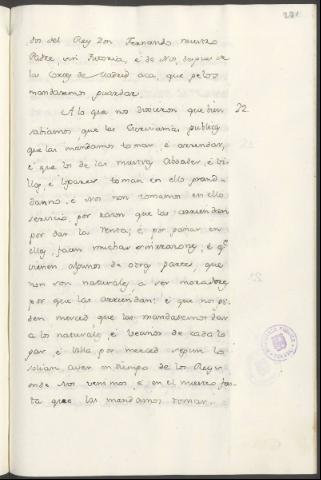 221
dos del Rey Don Fernando nuestro
Padre, con Tutoria, é de Nos, despues de
las Cortes de Madrid acá, que gelos
mandasemos guardar.
A lo que nos dixeron que bien 32
sabiamos que las Escrivanias publicas
que las mandamos tomar, é arrendar,
é que los de las nuestras Cibdades, é Vi-
llas, é Lugares toman en ello grand
danno, é Nos non tomamos en ello
servicio, por razon que las arriendan
por dar la renta; é por ganar en
ellas, facen muchas encorazones, é que
vienen algunos de otras partes, que
non son naturales, a ser moradores
por que las arriendan: é que nos pi-
den merced que las mandasemos dar
a los naturales, é vecinos de cada lo-
gar, é Villa por merced segun lo
solian aver en tiempo de los Reyes
onde Nos venimos, é en el nuestro fas-
ta que las mandamos tomar.